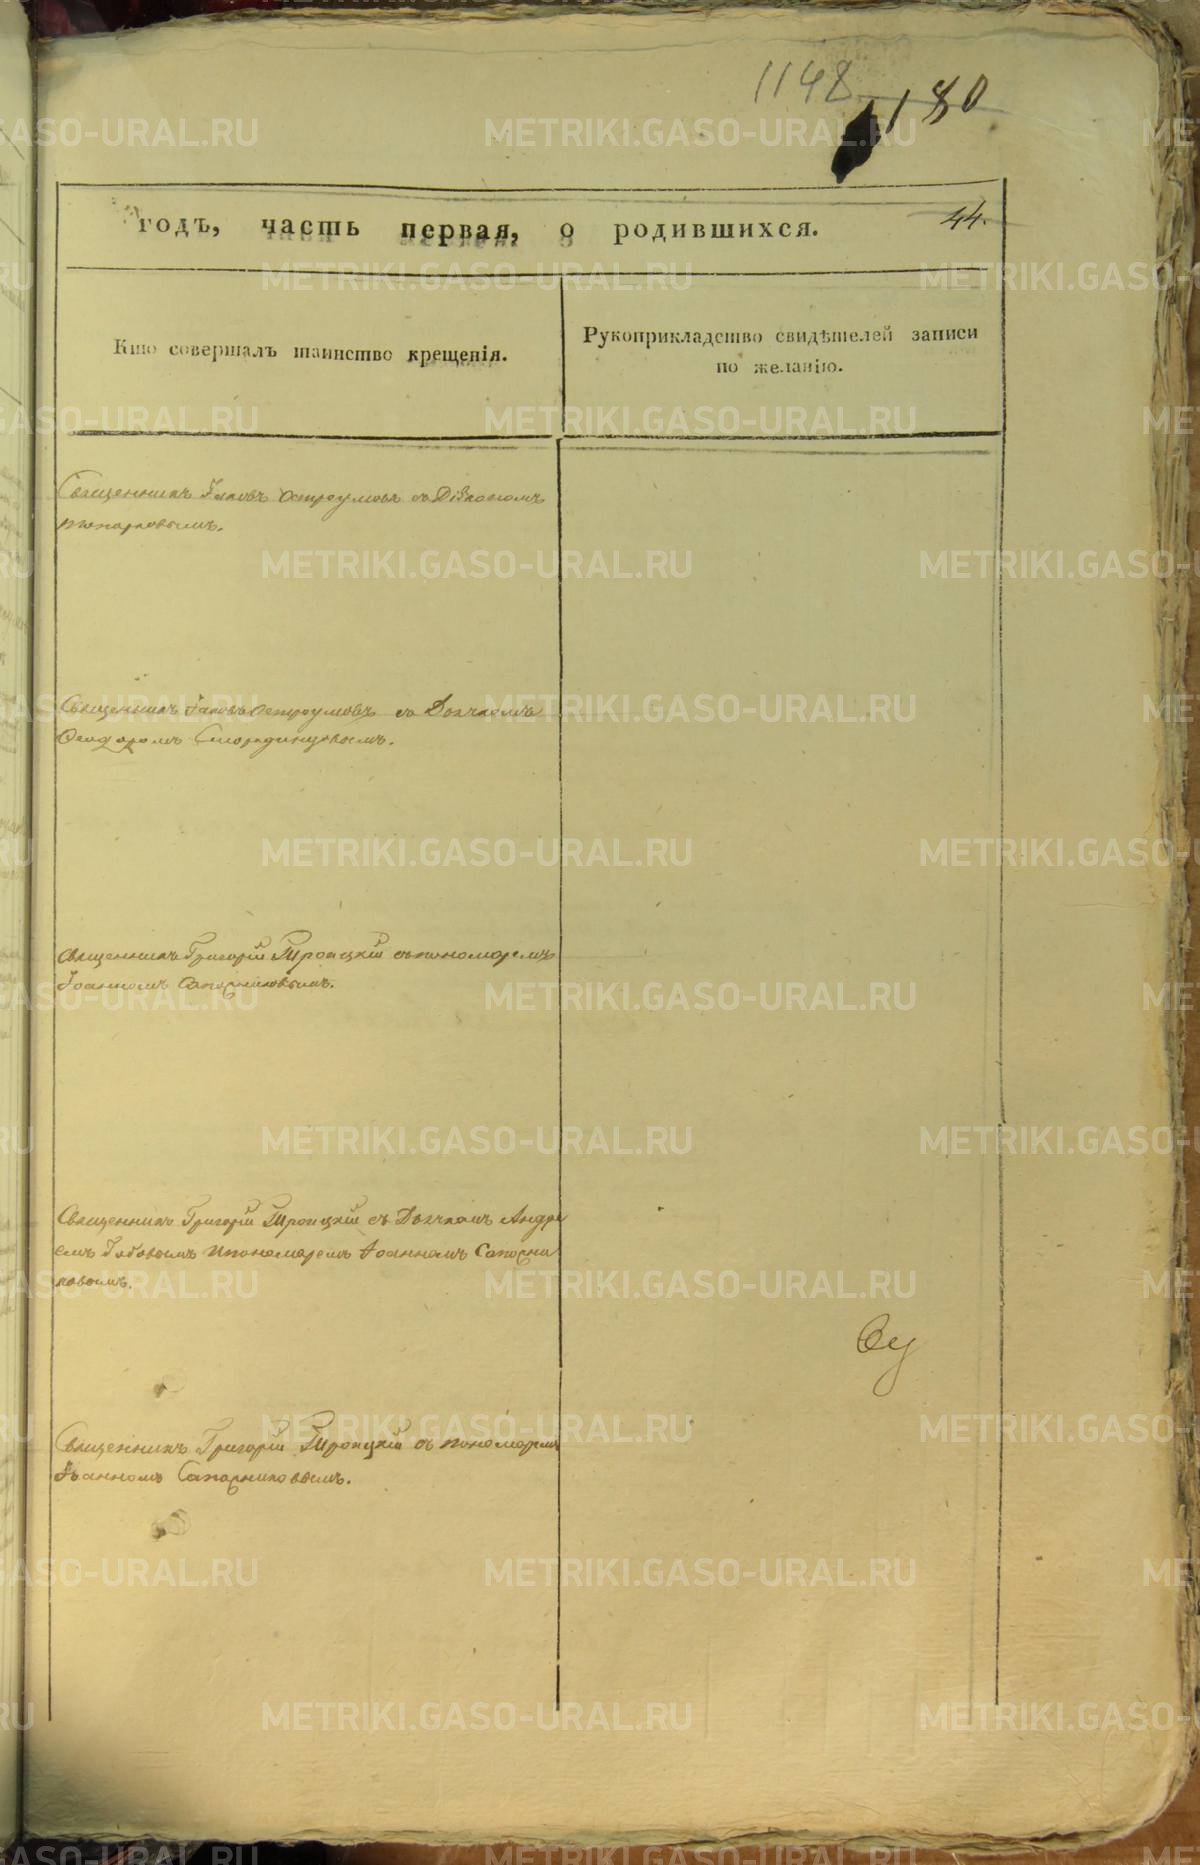 1148
180
годъ, часть первая, о родившихся.
44.
Кто совершалъ таинство крещенія.
Рукоприкладство свидѣтелей записи
по желанію.
Священникъ Іаковъ Остроумовъ съ Діакономъ
Священникъ Іаковъ Остроумовъ съ Дьячкомъ
Ѳеодоромъ
Священникъ Григорій Троицкій съ пономаремъ
Іоанномъ Сапожниковымъ.
Священникъ Григорій Троицкій съ Дьячкомъ Андре
емъ и пономаремъ Іоанномъ Сапожни
ковымъ.
Священникъ Григорій Троицкій съ пономаремъ
Іоанномъ Сапожниковымъ.
METRIKI.GASO-URAL.RU